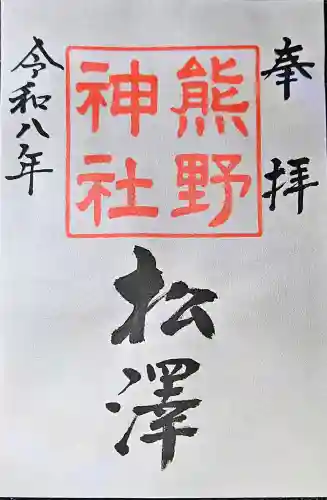 奉拝
熊野
神社
松澤
令和八年